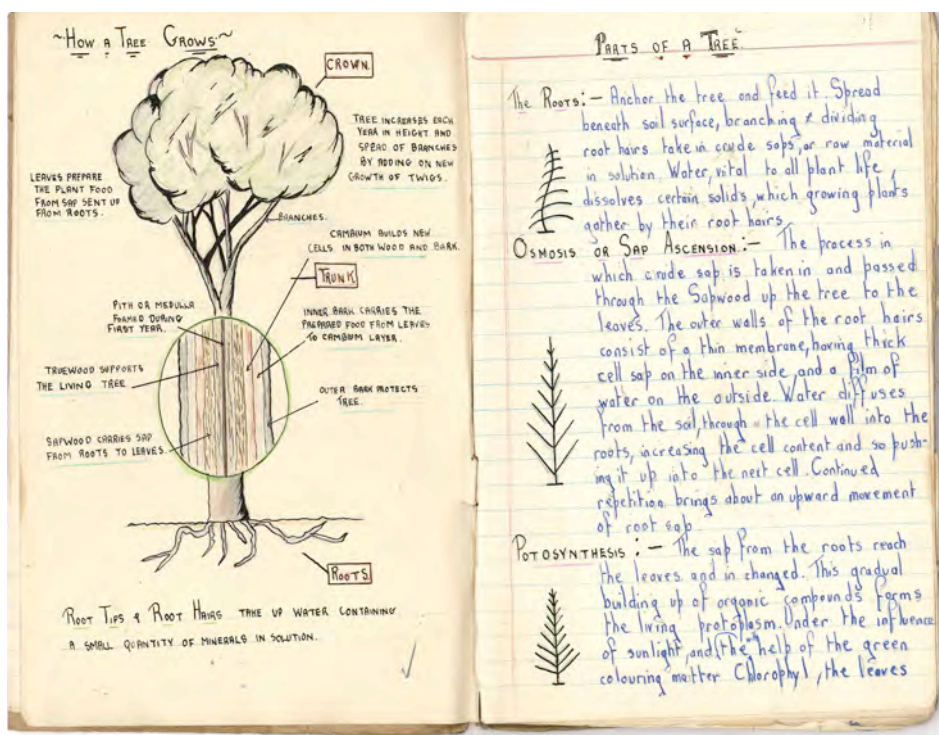 ~How a Tree Grows~
CROWN.
TREE INCREASES EACH
YEAR IN HEIGHT AND
SPEAD OF BRANCHES
BY ADDING ON NEW
GROWTH OF TWIGS.
LEAVES PREPARE
THE PLANT FOOD
FROM SAP SENT UP
FROM ROOTS.
BRANCHES.
CAMBIUM BUILDS NEW
CELLS IN BOTH WOOD AND BARK.
TRUNK
PITH OR MEDULLA
FORMED DURING
FIRST YEAR.
INNER BARK CARRIES THE
PREPARED FOOD FROM LEAVES
TO CAMBIUM LAYER.
TRUEWOOD SUPPORTS
THE LIVING TREE.
OUTER BARK PROTECTS
TREE.
SAPWOOD CARRIES SAP
FROM ROOTS TO LEAVES.
ROOTS
ROOT TIPS & ROOT HAIRS TAKE UP WATER CONTAINING
A SMALL QUANTITY OF MINERALS IN SOLUTION.
PARTS OF A TREE.
The Roots:- Anchor the tree and feed it. Spread
beneath soil surface, branching & dividing
root hairs take in crude saps, or raw material
in solution. Water, vital to all plant life,
dissolves certain solids, which growing plants
gather by their root hairs.
OSMOSIS OR SAP ASCENSION:- The process in
which crude sap is taken in and passed
through the Sapwood up the tree to the
leaves. The outer walls of the root hairs
consist of a thin membrane, having thick
cell sap on the inner side, and a film of
water on the outside. Water diffuses
from the soil, through the cell wall into the
roots, increasing the cell content and so push-
ing it up into the next cell. Continued
repetition brings about an upward movement
of root sap.
POTOSYNTHESIS:- The sap from the roots reach
the leaves and in changed. This gradual
building up of organic compounds forms
the living protoplasm. Under the influence
of sunlight, and the help of the green
colouring matter Chlorophyl, the leaves